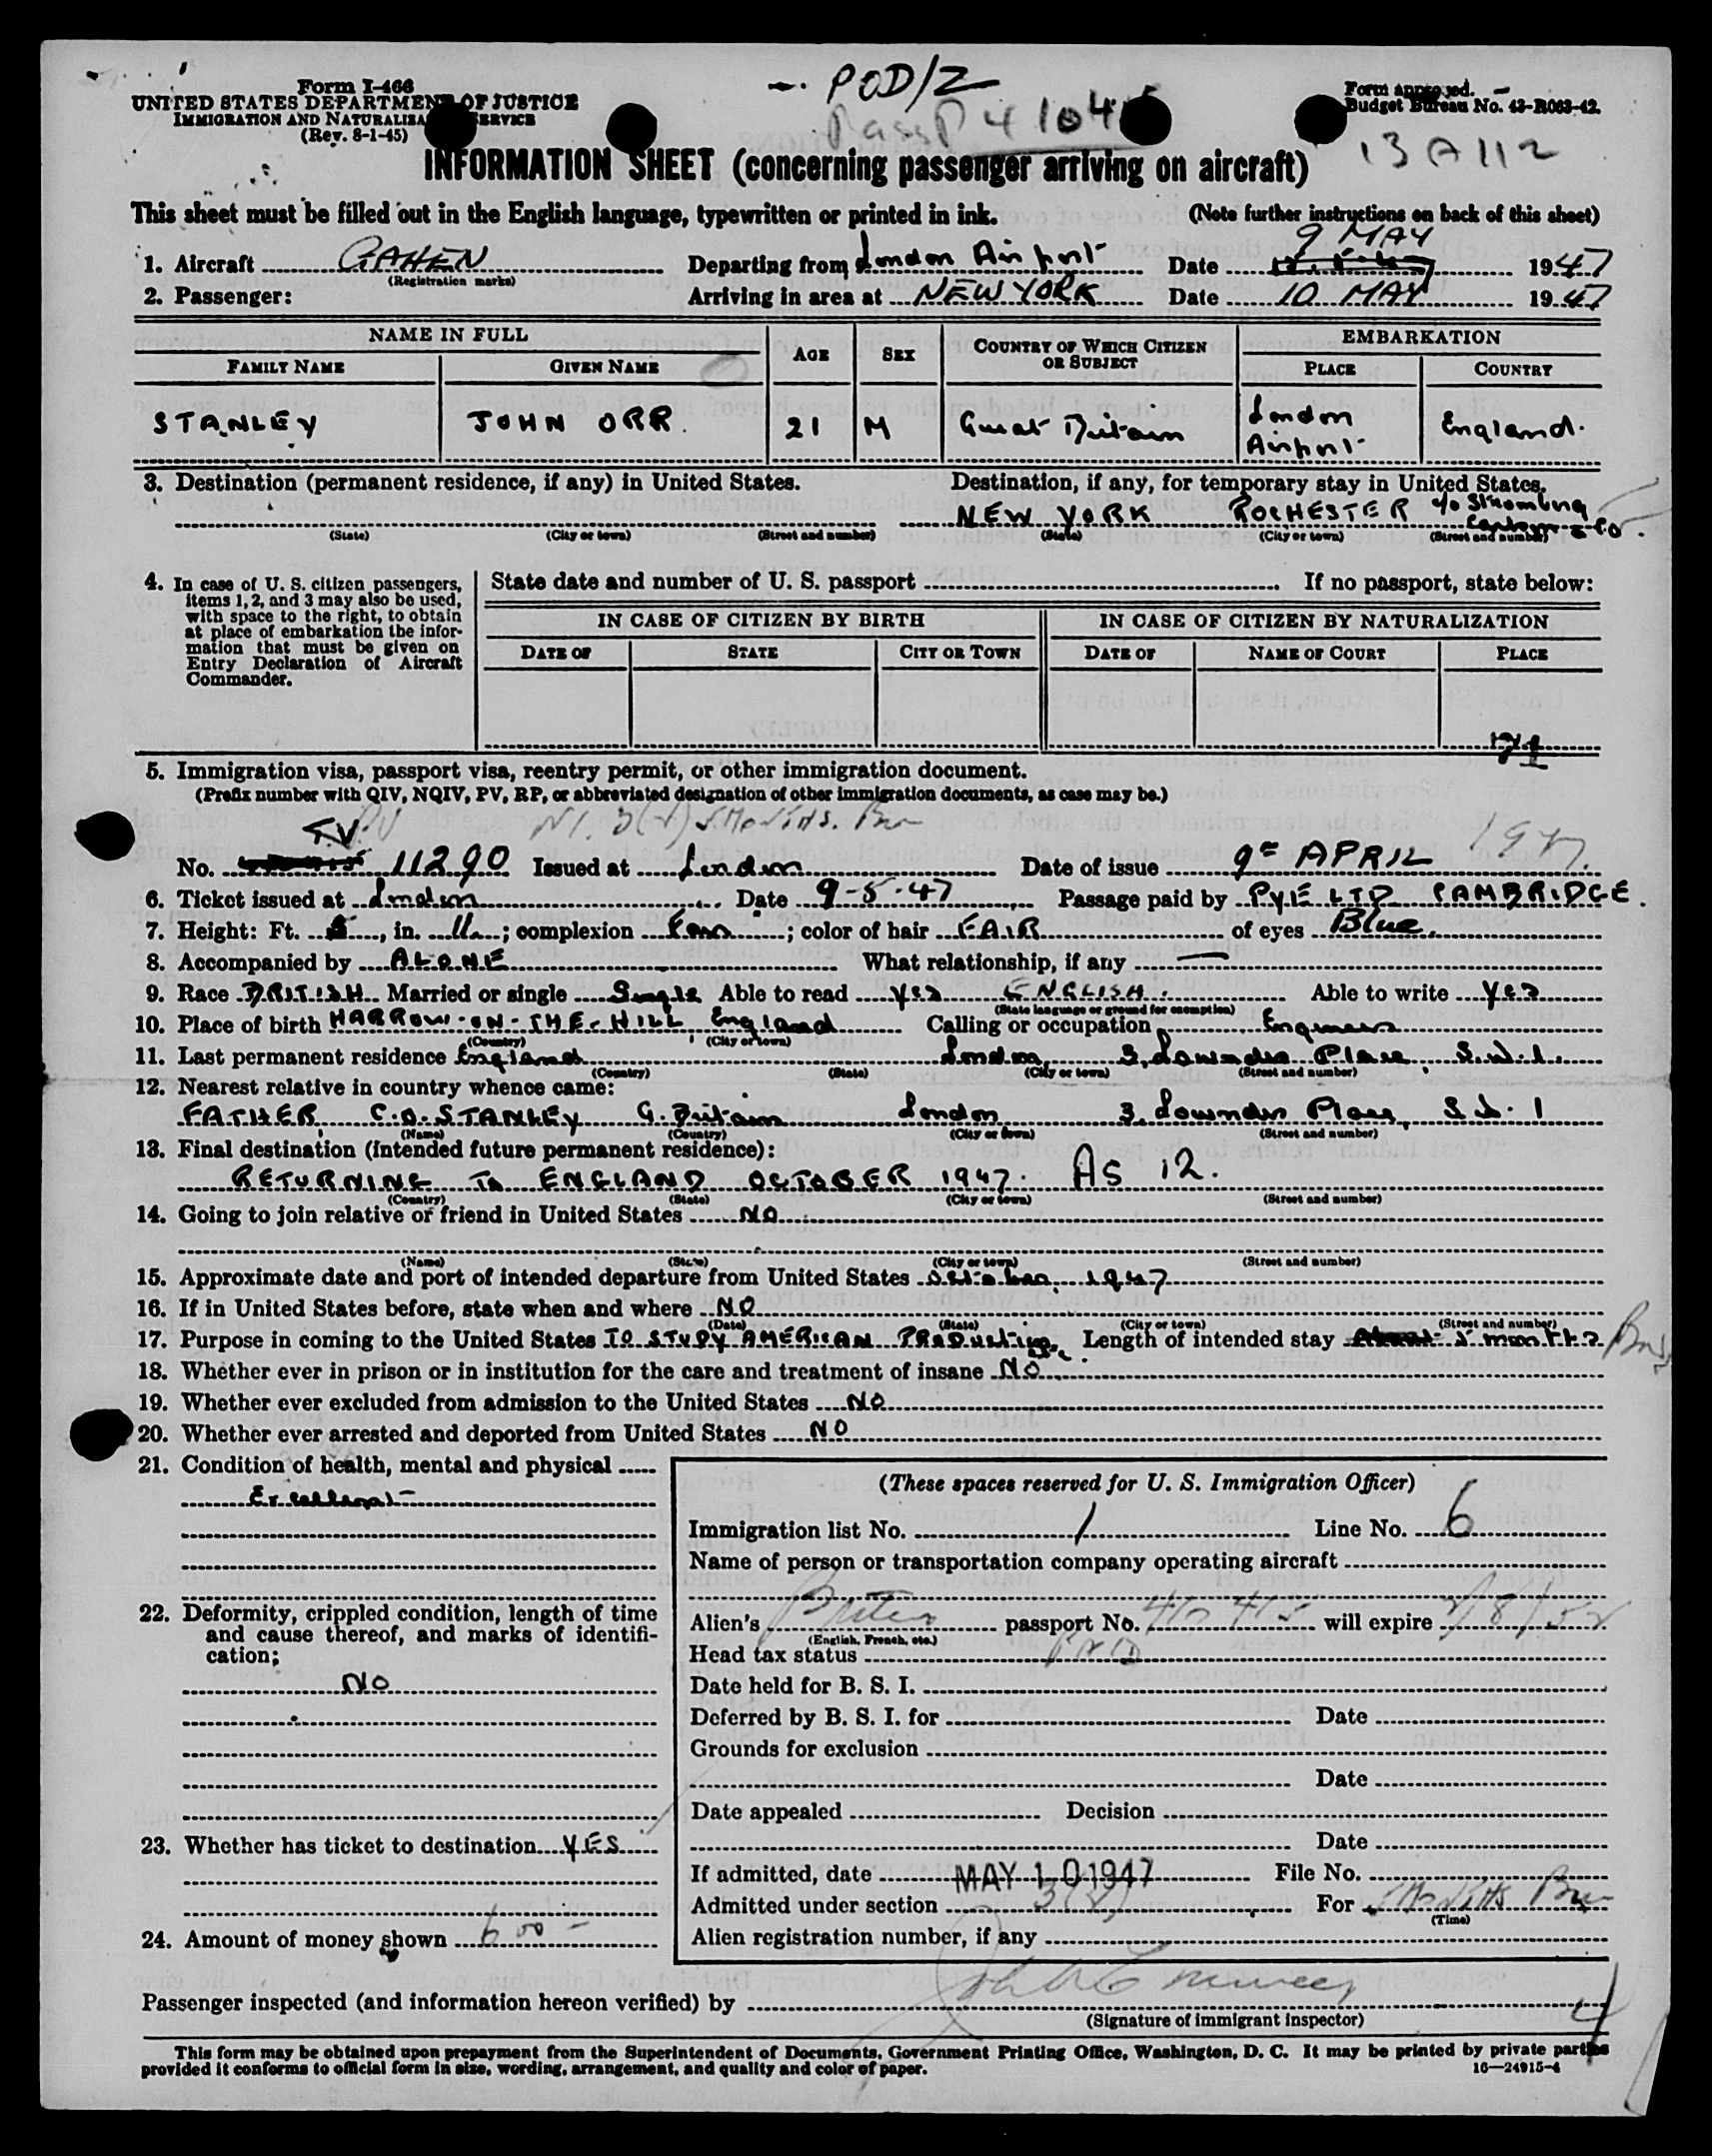 POD/Z
Form I-466
UNITED STATES DEPARTMENT OF JUSTICE
IMMIGRATION AND NATURALIZATION SERVICE
(Rev. 8-1-45)
Form approved.
Budget Bureau No. 43-R063-42.
PassP 41041
13A112
INFORMATION SHEET (concerning passenger arriving on aircraft)
This sheet must be filled out in the English language, typewritten or printed in ink. (Note further instructions on back of this sheet)
1. Aircraft GAHEN Departing from London Airport Date 9 MAY 1947
(Registration marks)
2. Passenger: Arriving in area at NEW YORK Date 10 MAY 1947
NAME IN FULL AGE SEX COUNTRY OF WHICH CITIZEN OR SUBJECT EMBARKATION
FAMILY NAME GIVEN NAME PLACE COUNTRY
STANLEY JOHN ORR. 21 M Great Britain London Airport England.
3. Destination (permanent residence, if any) in United States. Destination, if any, for temporary stay in United States.
NEW YORK ROCHESTER c/o Stromberg Carlson Co.
(State) (City or town) (Street and number) (State) (City or town) (Street and number)
4. In case of U. S. citizen passengers, items 1, 2, and 3 may also be used, with space to the right, to obtain at place of embarkation the information that must be given on Entry Declaration of Aircraft Commander.
State date and number of U. S. passport If no passport, state below:
IN CASE OF CITIZEN BY BIRTH IN CASE OF CITIZEN BY NATURALIZATION
DATE OF STATE CITY OR TOWN DATE OF NAME OF COURT PLACE
5. Immigration visa, passport visa, reentry permit, or other immigration document.
(Prefix number with QIV, NQIV, PV, RP, or abbreviated designation of other immigration documents, as case may be.)
T.V. PV 3(2) 5 Months. Bus
No. 11290 Issued at London Date of issue 9th APRIL 1947.
6. Ticket issued at London Date 9-5-47 Passage paid by PYE LTD CAMBRIDGE.
7. Height: Ft. 5, in. 11; complexion Fair; color of hair FAIR of eyes Blue.
8. Accompanied by ALONE What relationship, if any —
9. Race BRITISH Married or single Single Able to read yes ENGLISH. Able to write yes
(State language or ground for exemption)
10. Place of birth HARROW-ON-THE-HILL England Calling or occupation Engineer
(Country) (City or town)
11. Last permanent residence England London 3, Lowndes Place S.W.1.
(Country) (State) (City or town) (Street and number)
12. Nearest relative in country whence came:
FATHER C.O. STANLEY G. Britain London 3, Lowndes Place, S.W.1
(Name) (Country) (City or town) (Street and number)
13. Final destination (intended future permanent residence):
RETURNING TO ENGLAND OCTOBER 1947. AS 12.
(Country) (State) (City or town) (Street and number)
14. Going to join relative or friend in United States NO
(Name) (State) (City or town) (Street and number)
15. Approximate date and port of intended departure from United States October, 1947
16. If in United States before, state when and where NO
(Date) (State) (City or town) (Street and number)
17. Purpose in coming to the United States TO STUDY AMERICAN Production Length of intended stay 5 months Bus
18. Whether ever in prison or in institution for the care and treatment of insane NO
19. Whether ever excluded from admission to the United States NO
20. Whether ever arrested and deported from United States NO
21. Condition of health, mental and physical
Excellent
22. Deformity, crippled condition, length of time and cause thereof, and marks of identification;
NO
23. Whether has ticket to destination YES
24. Amount of money shown 600-
(These spaces reserved for U. S. Immigration Officer)
Immigration list No. 1 Line No. 6
Name of person or transportation company operating aircraft
Alien's British passport No. 410415 will expire 2/8/52
(English, French, etc.)
Head tax status PAID
Date held for B. S. I.
Deferred by B. S. I. for Date
Grounds for exclusion
Date
Date appealed Decision
Date
If admitted, date MAY 10 1947 File No.
Admitted under section 3(2) For 5 Months Bus
(Time)
Alien registration number, if any
Passenger inspected (and information hereon verified) by
(Signature of immigrant inspector)
4
This form may be obtained upon prepayment from the Superintendent of Documents, Government Printing Office, Washington, D. C. It may be printed by private parties
provided it conforms to official form in size, wording, arrangement, and quality and color of paper. 16—24915-4